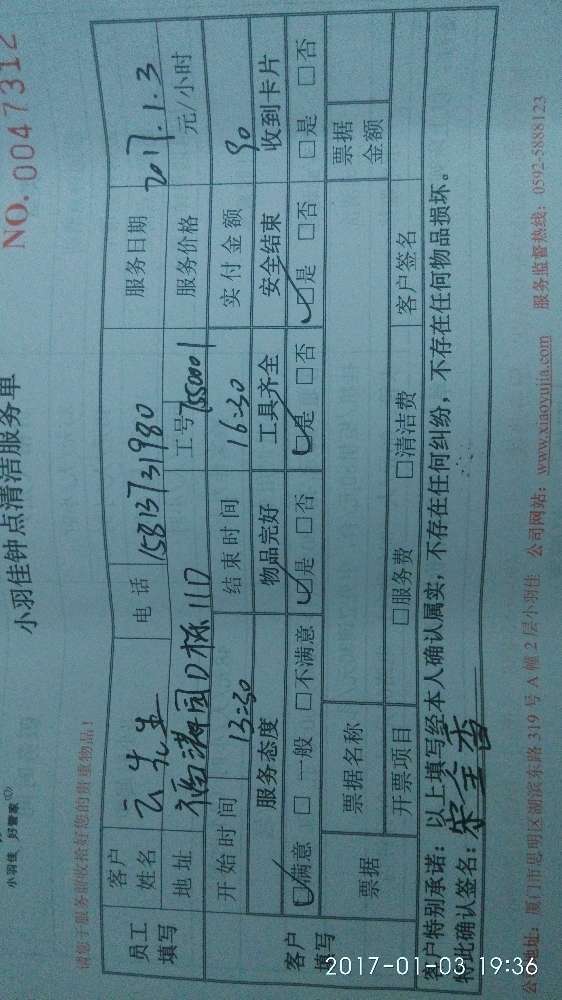 小羽佳 好管家
小羽佳钟点清洁服务单
NO. 0047312
请您于服务前收拾好您的贵重物品！
员工填写 客户姓名 云先生 电话 15813731980 服务日期 2017.1.3
地址 D栋11D 工号 服务价格 元/小时
客户填写 开始时间 13:30 结束时间 16:30 实付金额 90
服务态度 物品完好 工具齐全 安全结束 收到卡片
☑满意 □一般 □不满意 ☑是 □否 ☑是 □否 ☑是 □否 □是 □否
票据 票据名称 票据金额
开票项目 □服务费 □清洁费 客户签名
客户特别承诺：以上填写经本人确认属实，不存在任何纠纷，不存在任何物品损坏。
特此确认签名：
公司地址：厦门市思明区湖滨东路 319 号 A 幢 2 层小羽佳 公司网站：www.xiaoyujia.com 服务监督热线：0592-5888123
2017-01-03 19:36